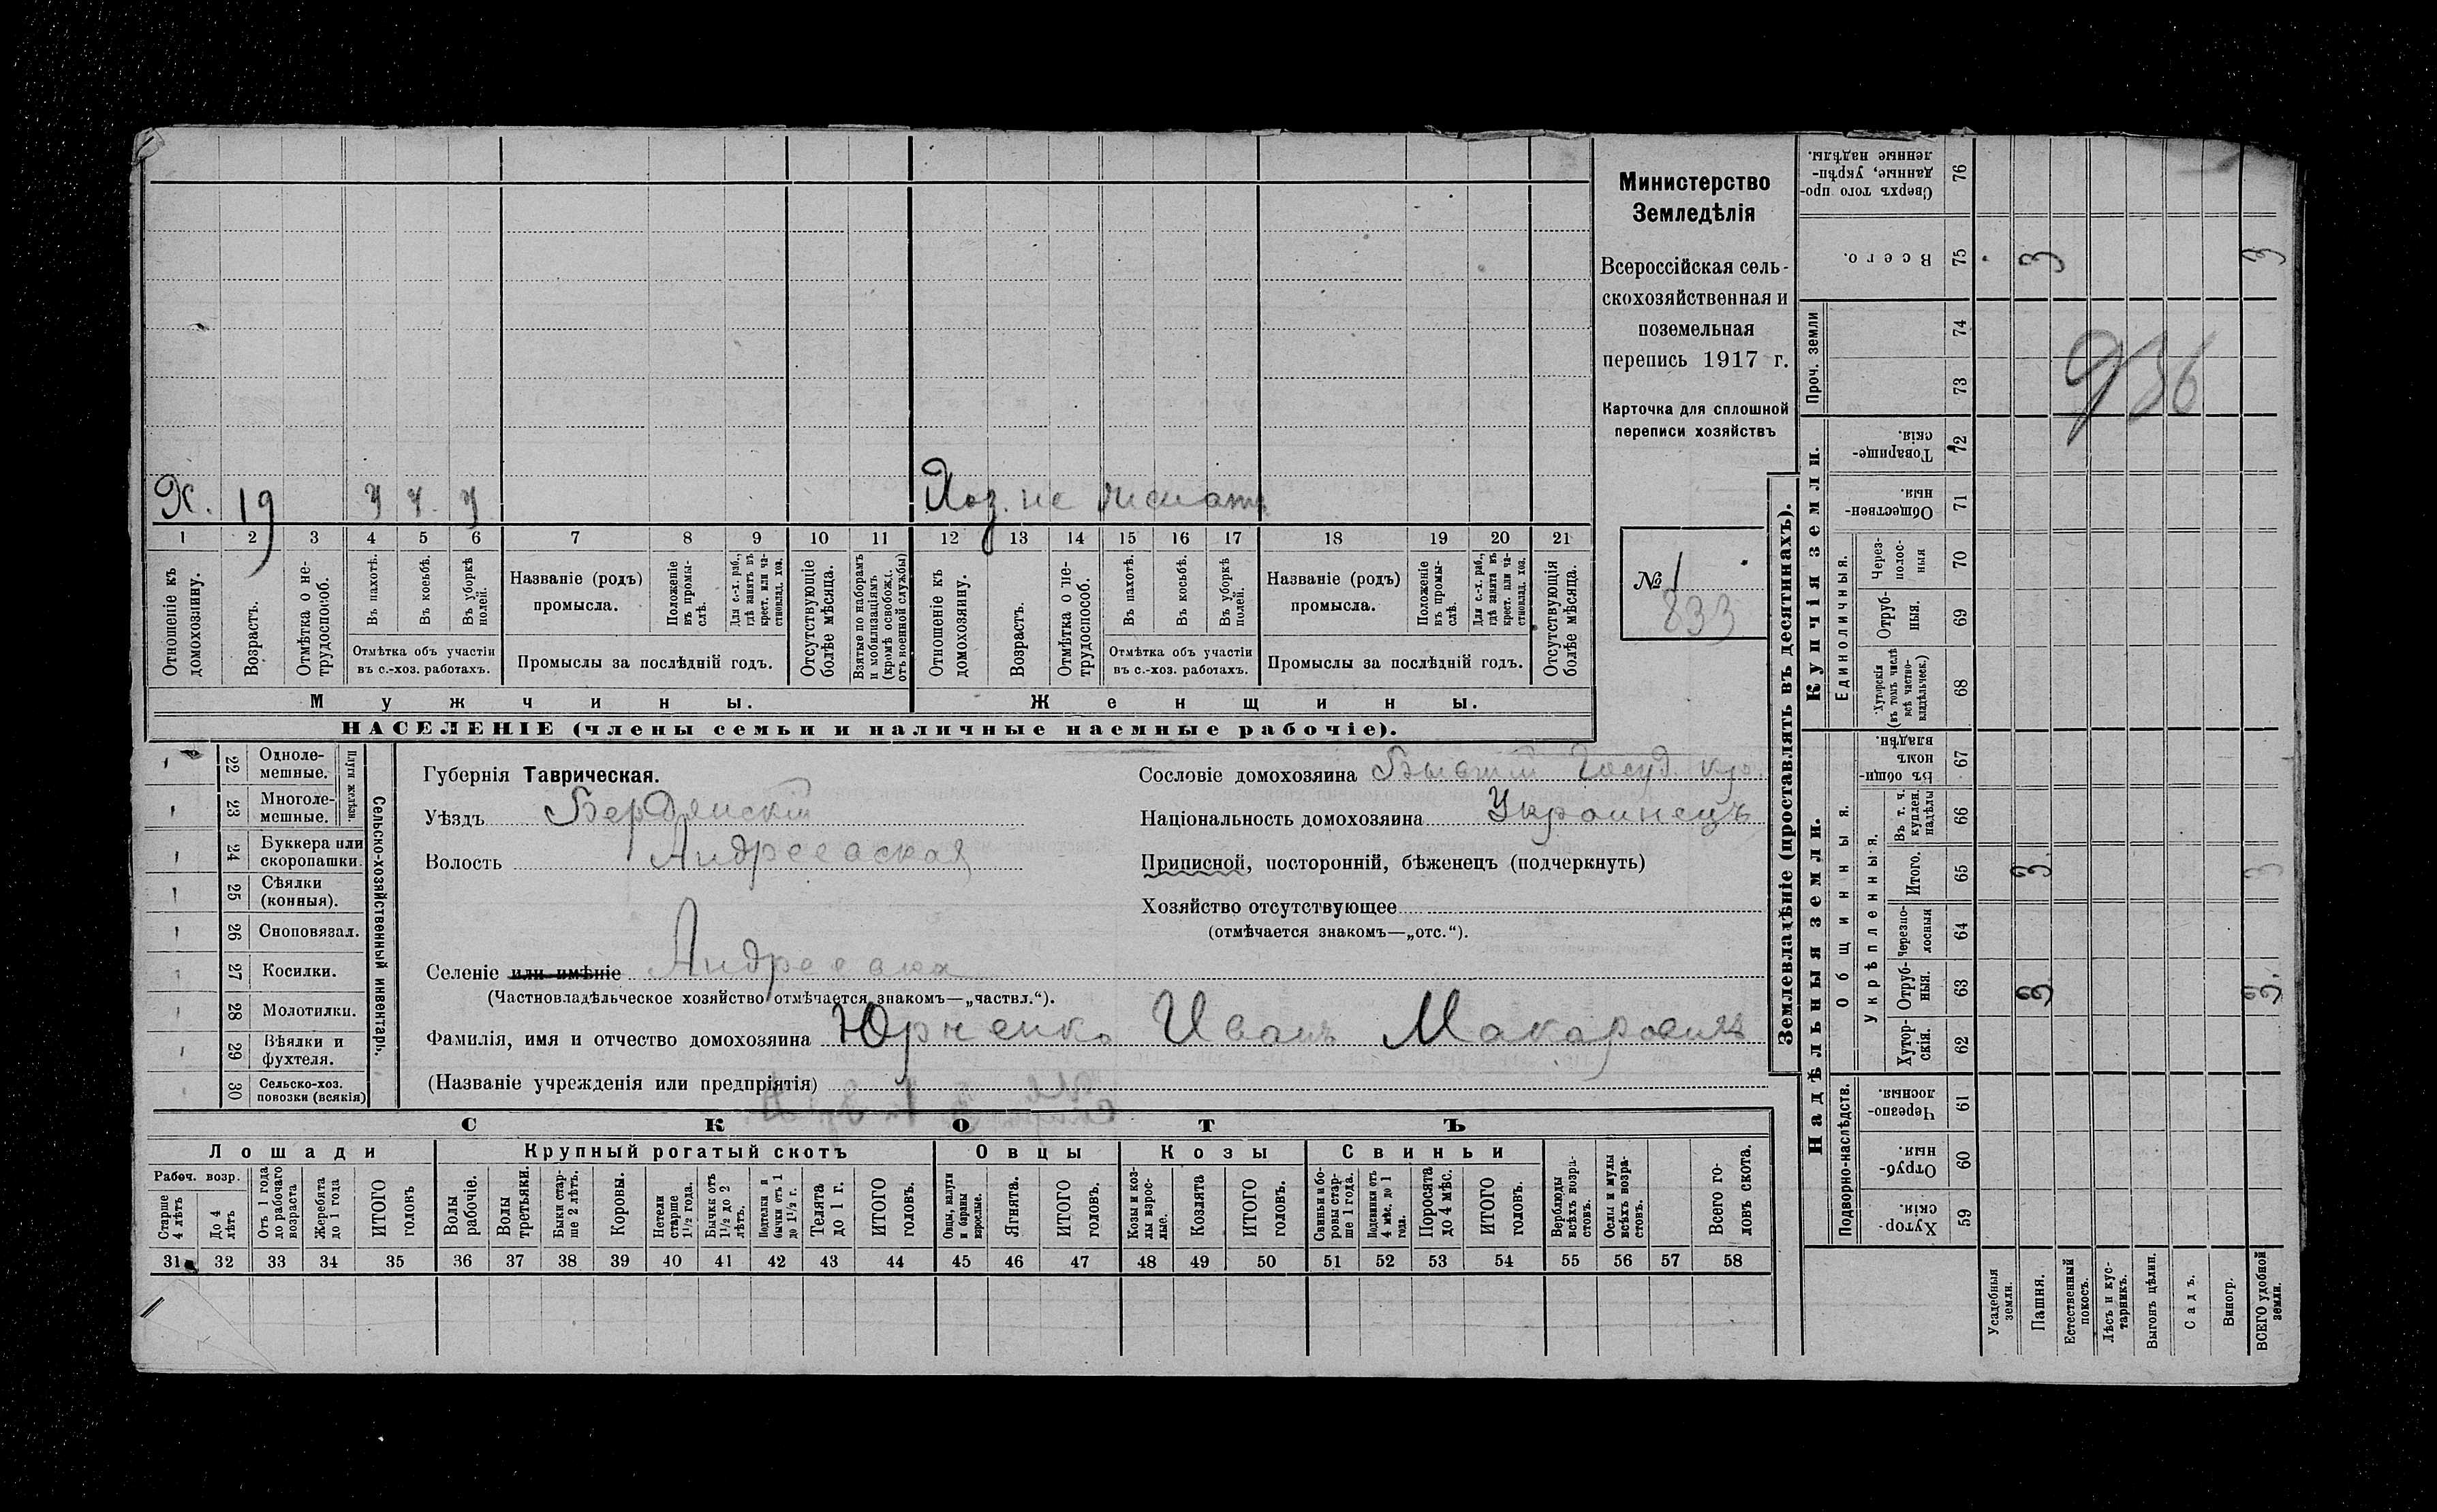 Х. 19 у у. у Хоз. не писать
1 2 3 4 5 6 7 8 9 10 11 12 13 14 15 16 17 18 19 20 21
Отношеніе къ домохозяину.
Возрастъ.
Отмѣтка о не-трудоспособ.
Въ пахотѣ.
Въ косьбѣ.
Въ уборкѣ полей.
Отмѣтка объ участіи
въ с.-хоз. работахъ.
Названіе (родъ)
промысла.
Положеніе въ промы-слѣ.
Для с.-х. раб., гдѣ занятъ въ крест. или ча-стновлад. хоз.
Промыслы за послѣдній годъ.
Отсутствующіе болѣе мѣсяца.
Взятые по наборамъ и мобилизаціямъ (кромѣ освобожд. отъ военной службы)
Отношеніе къ домохозяину.
Возрастъ.
Отмѣтка о не-трудоспособ.
Въ пахотѣ.
Въ косьбѣ.
Въ уборкѣ полей.
Отмѣтка объ участіи
въ с.-хоз. работахъ.
Названіе (родъ)
промысла.
Положеніе въ промы-слѣ.
Для с.-х. раб., гдѣ занята въ крест. или ча-стновлад. хоз.
Промыслы за послѣдній годъ.
Отсутствующія болѣе мѣсяца.
Мужчины. Женщины.
НАСЕЛЕНІЕ (члены семьи и наличные наемные рабочіе).
Министерство
Земледѣлія
Всероссійская сель-
скохозяйственная и
поземельная
перепись 1917 г.
Карточка для сплошной
переписи хозяйствъ
№ 1
833
22 Одноле-мешные.
23 Многоле-мешные.
Плуги желѣзн.
24 Буккера или скоропашки.
25 Сѣялки (конныя).
26 Сноповязал.
27 Косилки.
28 Молотилки.
29 Вѣялки и фухтеля.
30 Сельско-хоз. повозки (всякія)
Сельско-хозяйственный инвентарь.
Губернія Таврическая.
Уѣздъ Бердянскій
Волость Андреевская
Селеніе или имѣніе Андреевка
(Частновладѣльческое хозяйство отмѣчается знакомъ—„частвл.“).
Фамилія, имя и отчество домохозяина Юрченко Иванъ Макаровичъ
(Названіе учрежденія или предпріятія)
Сословіе домохозяина Бывшій Госуд. кр.
Національность домохозяина Украинецъ
Приписной, посторонній, бѣженецъ (подчеркнуть)
Хозяйство отсутствующее
(отмѣчается знакомъ—„отс.“).
СКОТЪ
Лошади Крупный рогатый скотъ Овцы Козы Свиньи
Рабоч. возр.
Старше 4 лѣтъ
До 4 лѣтъ
Отъ 1 года до рабочаго возраста
Жеребята до 1 года
ИТОГО головъ
Волы рабочіе.
Волы третьяки.
Быки стар-ше 2 лѣтъ.
Коровы.
Нетели старше 1½ года.
Бычки отъ 1½ до 2 лѣтъ.
Подтелки и бычки отъ 1 до 1½ г.
Телята до 1 г.
ИТОГО головъ.
Овцы, валухи и бараны взрослые.
Ягнята.
ИТОГО головъ.
Козы и коз-лы взрос-лые.
Козлята
ИТОГО головъ.
Свиньи и бо-ровы стар-ше 1 года.
Подсвинки отъ 4 мѣс. до 1 года.
Поросята до 4 мѣс.
ИТОГО головъ.
Верблюды всѣхъ возра-стовъ.
Ослы и мулы всѣхъ возра-стовъ.
Всего го-ловъ скота.
31 32 33 34 35 36 37 38 39 40 41 42 43 44 45 46 47 48 49 50 51 52 53 54 55 56 57 58
Землевладѣніе (проставлять въ десятинахъ).
Надѣльныя земли.
Купчія земли.
Проч. земли
Подворно-наслѣдств.
Общинныя.
Укрѣпленныя.
Единоличныя.
59 Хутор-скія.
60 Отруб-ныя.
61 Черезпо-лосныя
62 Хутор-скія.
63 Отруб-ныя. 3 3.
64 Черезпо-лосныя
65 Итого. 3 3
66 Въ т. ч. куплен. надѣлы
67 Въ общи-номъ владѣн.
68 Хуторскія (въ томъ числѣ всѣ частно-владѣльческ.)
69 Отруб-ныя.
70 Через-полос-ныя
71 Обществен-ныя
72 Товарище-скія.
73
74
75 Всего. 3 3
76 Сверхъ того про-данные, укрѣп-ленные надѣлы.
936
Усадебныя земли.
Пашня.
Естественный покосъ.
Лѣсъ и кус-тарникъ.
Выгонъ цѣлин.
Садъ.
Виногр.
ВСЕГО удобной земли.